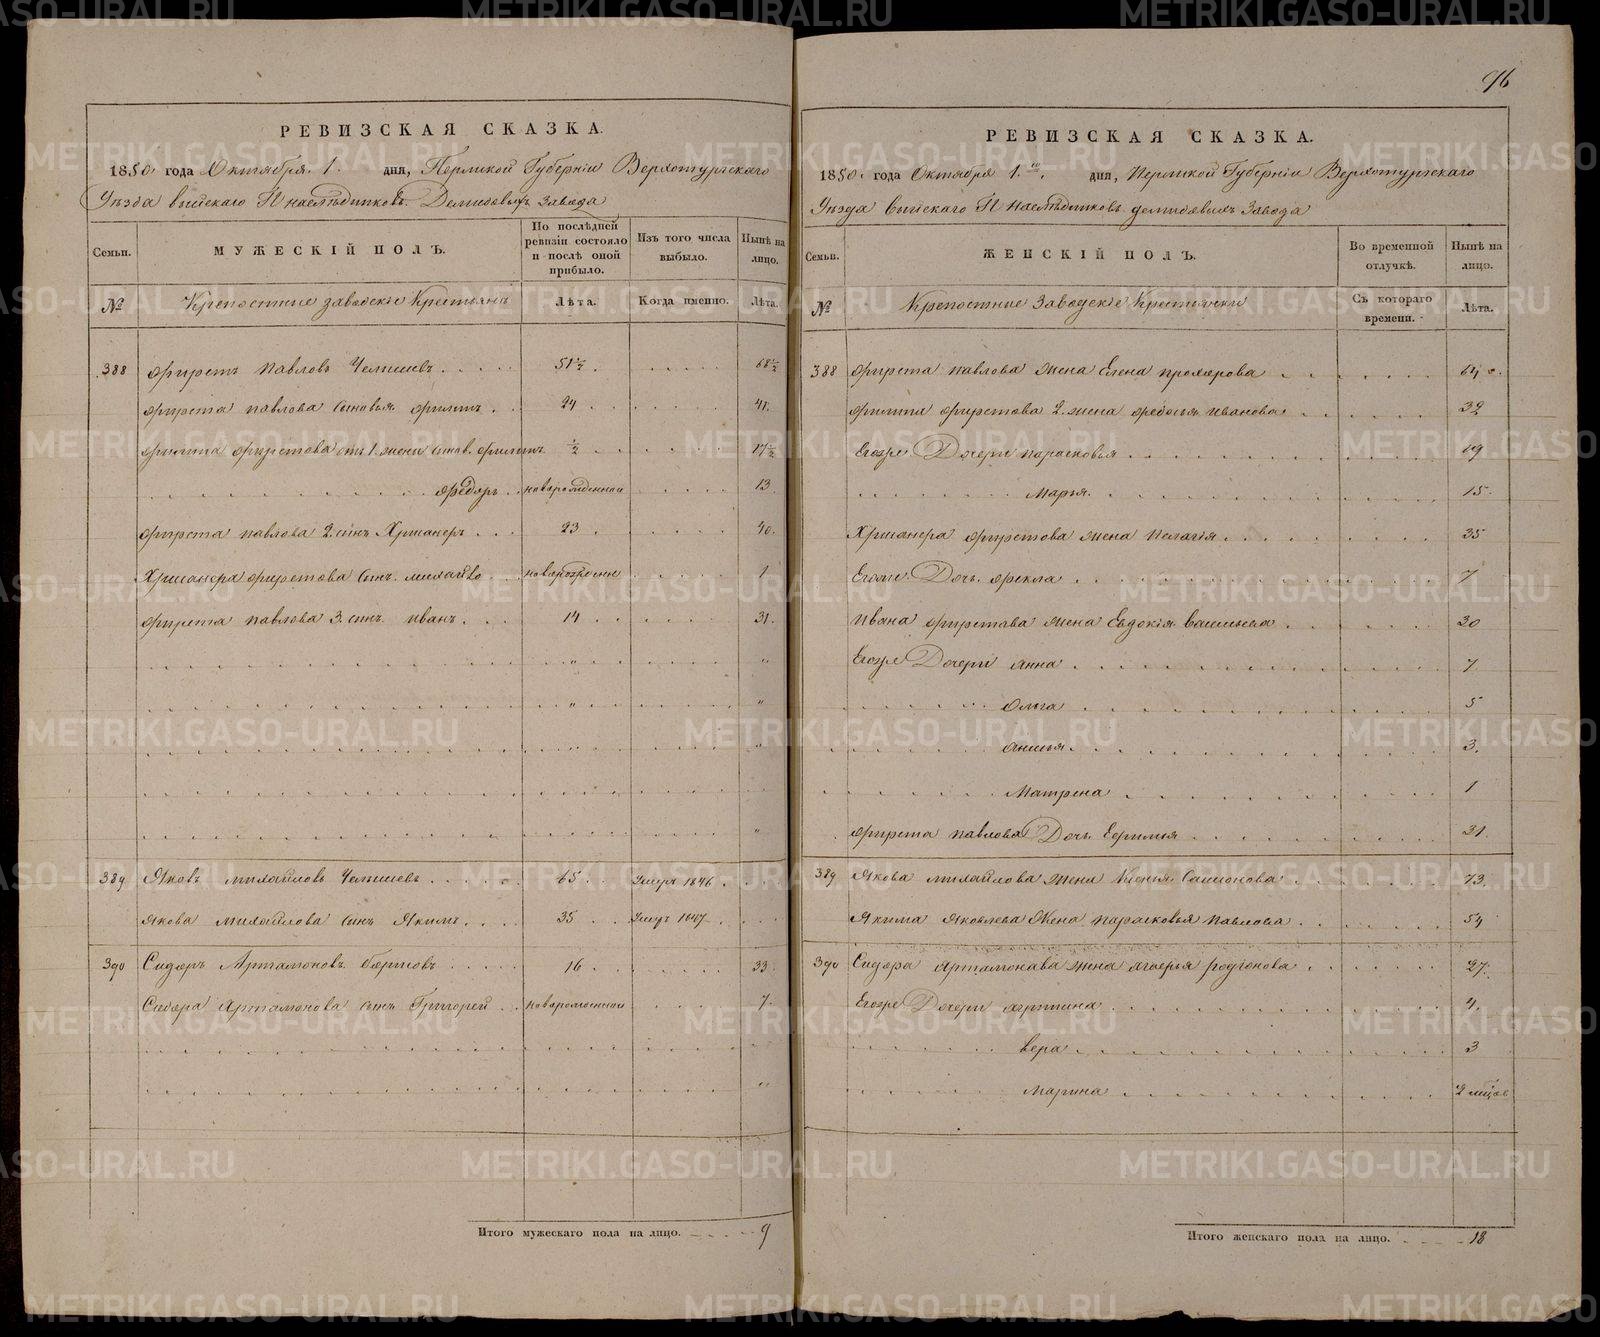 96
РЕВИЗСКАЯ СКАЗКА.
1850 года Октября 1. дня, Пермской Губерніи Верхотурскаго
Уезда выйскаго Г. наследниковъ Демидовыхъ завода
Семьи.
МУЖЕСКІЙ ПОЛЪ.
По послѣдней ревизіи состояло и послѣ оной прибыло.
Изъ того числа выбыло.
Нынѣ на лицо.
№
Крепостные заводскіе Крестьяне
Лѣта.
Когда именно.
Лѣта.
388 Фирстъ Павловъ Челышевъ 51½ 68½
Фирста Павлова сыновья Филипъ 24 41.
Филипа Фирстова отъ 1. жены сынов. Филипъ ½ 17½
Федоръ новорожденной 13
Фирста Павлова 2. сынъ 23 40.
Фирстова сынъ Михайло 1
Фирста Павлова 3. сынъ Иванъ 14 31.
389 Яковъ Михайловъ Челышевъ 65 Умеръ 1846
Якова Михайлова сынъ Якимъ 35 Умеръ 1847
390 Сидоръ Артамоновъ 16 33
Сидора Артамонова сынъ Григорей новорожденной 7.
Итого мужескаго пола на лицо. 9
РЕВИЗСКАЯ СКАЗКА.
1850 года Октября 1го. дня, Пермской Губерніи Верхотурскаго
Уезда Выйскаго Г. наследниковъ демидовыхъ Завода
Семьи.
ЖЕНСКІЙ ПОЛЪ.
Во временной отлучкѣ.
Нынѣ на лицо.
№
Крепостные Заводскіе Крестьянки
Съ котораго времени.
Лѣта.
388 Фирста Павлова жена Елена Прохорова 64
Филипа Фирстова 2. жена Федосья Иванова 32
Егоже Дочери Парасковья 19
Марья 15.
Фирстова жена Пелагія 35
Егоже Дочь Фекла 7
Ивана Фирстова жена Евдокія 30
Егоже Дочери Анна 7
Ольга 5
Анисья 3.
Матрена 1
Фирста Павлова Дочь 31.
389 Якова Михайлова жена Ксенья Самсонова 73.
Якима Яковлева Жена Парасковья Павлова 54
390 Сидора Артамонава жена Агафья Родіонова 27.
Егоже Дочери 4.
Вера 3
Марина
Итого женскаго пола на лицо. 18
METRIKI.GASO-URAL.RU